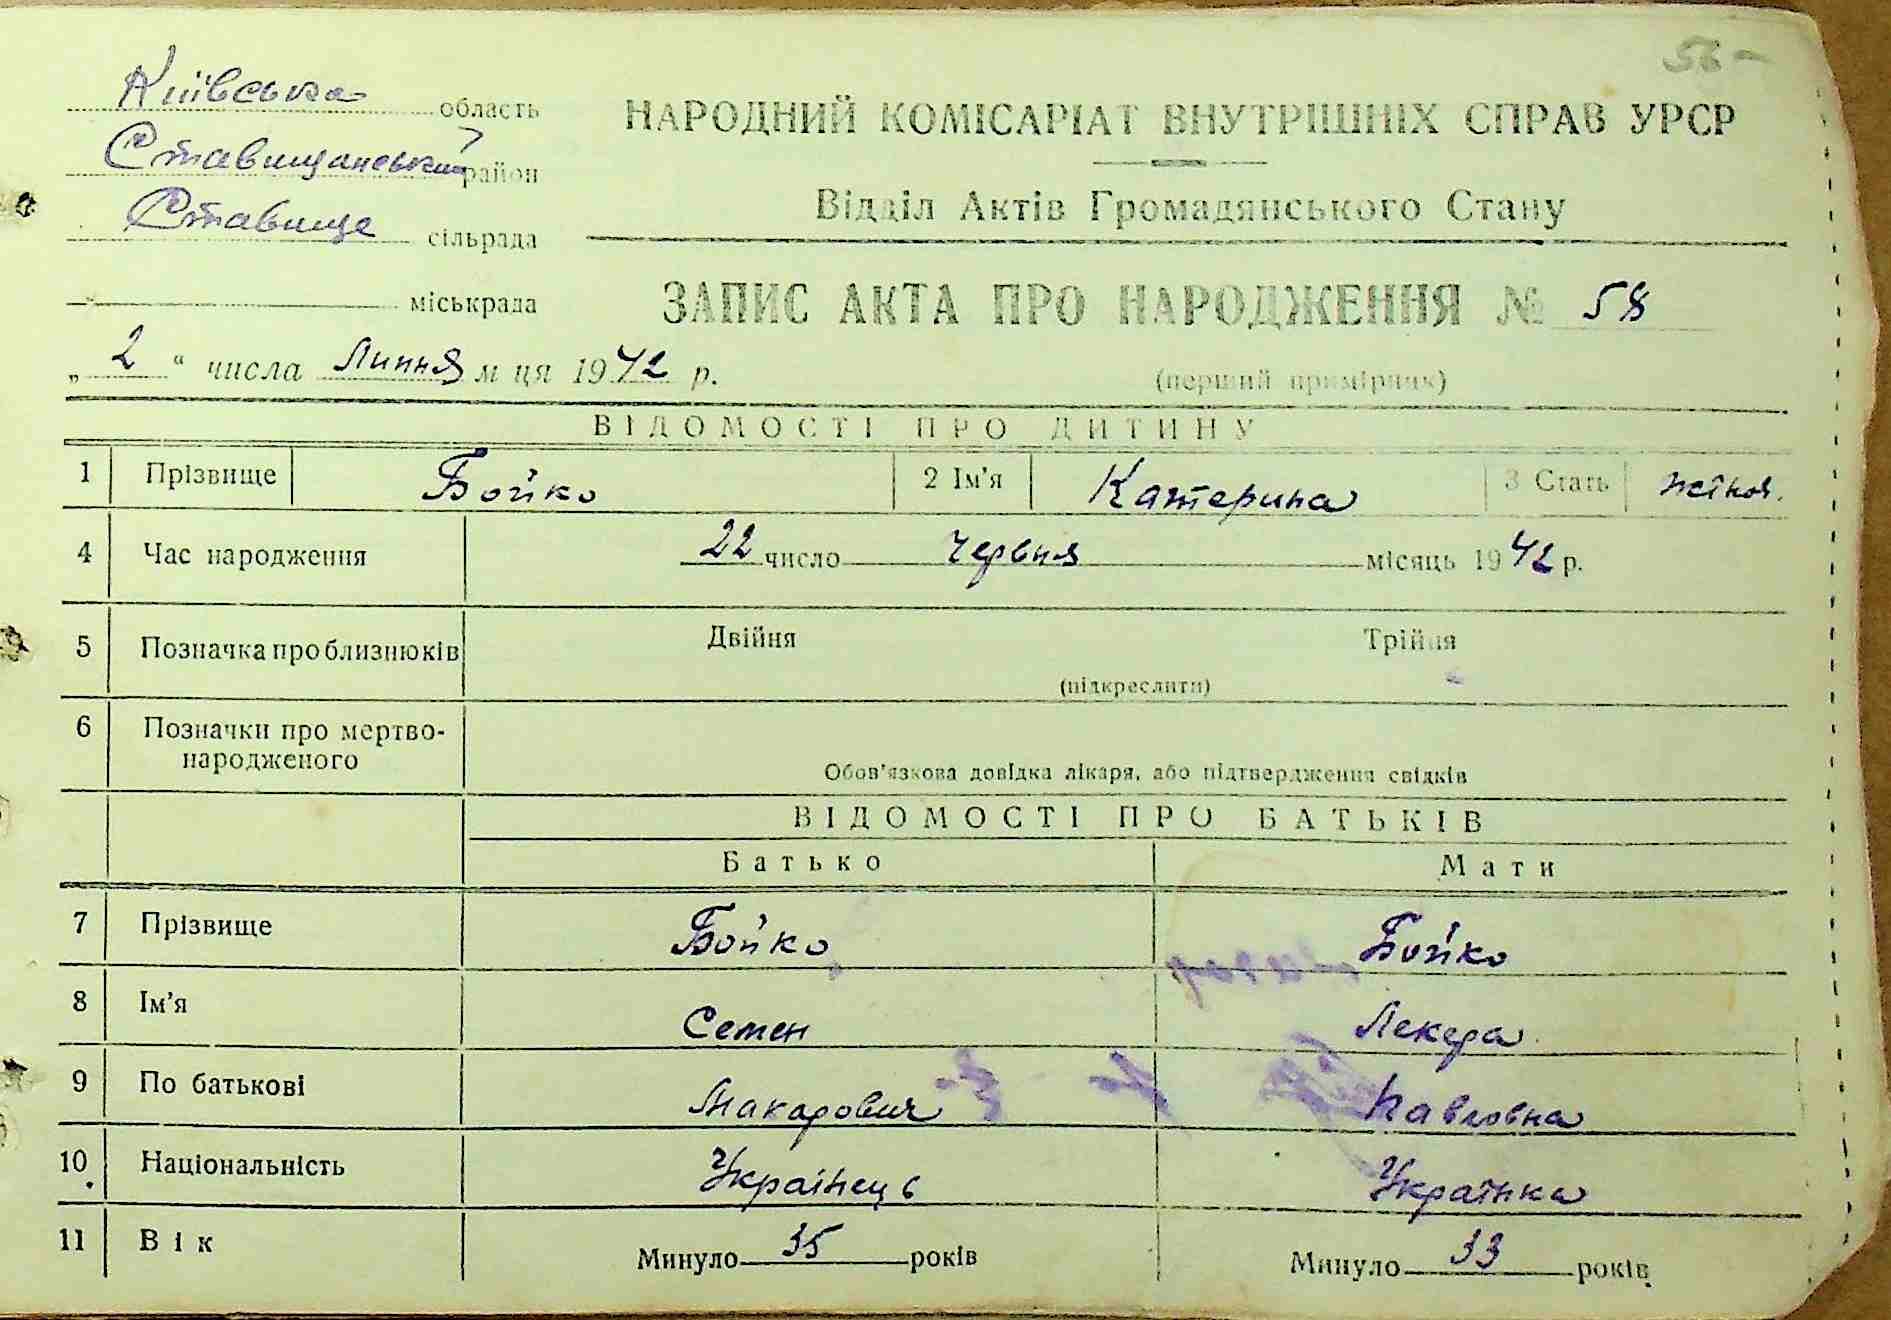 56
Київська область
Ставищанський район
Ставище сільрада
міськрада
НАРОДНИЙ КОМІСАРІАТ ВНУТРІШНІХ СПРАВ УРСР
Відділ Актів Громадянського Стану
ЗАПИС АКТА ПРО НАРОДЖЕННЯ № 58
„ 2 “ числа Липня м ця 1942 р.
(перший примірник)
ВІДОМОСТІ ПРО ДИТИНУ
1 Прізвище Бойко 2 Ім'я Катерина 3 Стать жіноч.
4 Час народження 22 число червня місяць 1942 р.
5 Позначка про близнюків Двійня Трійня
(підкреслити)
6 Позначки про мертво-
народженого
Обов'язкова довідка лікаря, або підтвердження свідків
ВІДОМОСТІ ПРО БАТЬКІВ
Батько Мати
7 Прізвище Бойко Бойко
8 Ім'я Семен Лекера
9 По батькові Макарович Павловна
10 Національність Українець Українка
11 Вік Минуло 35 років Минуло 33 років